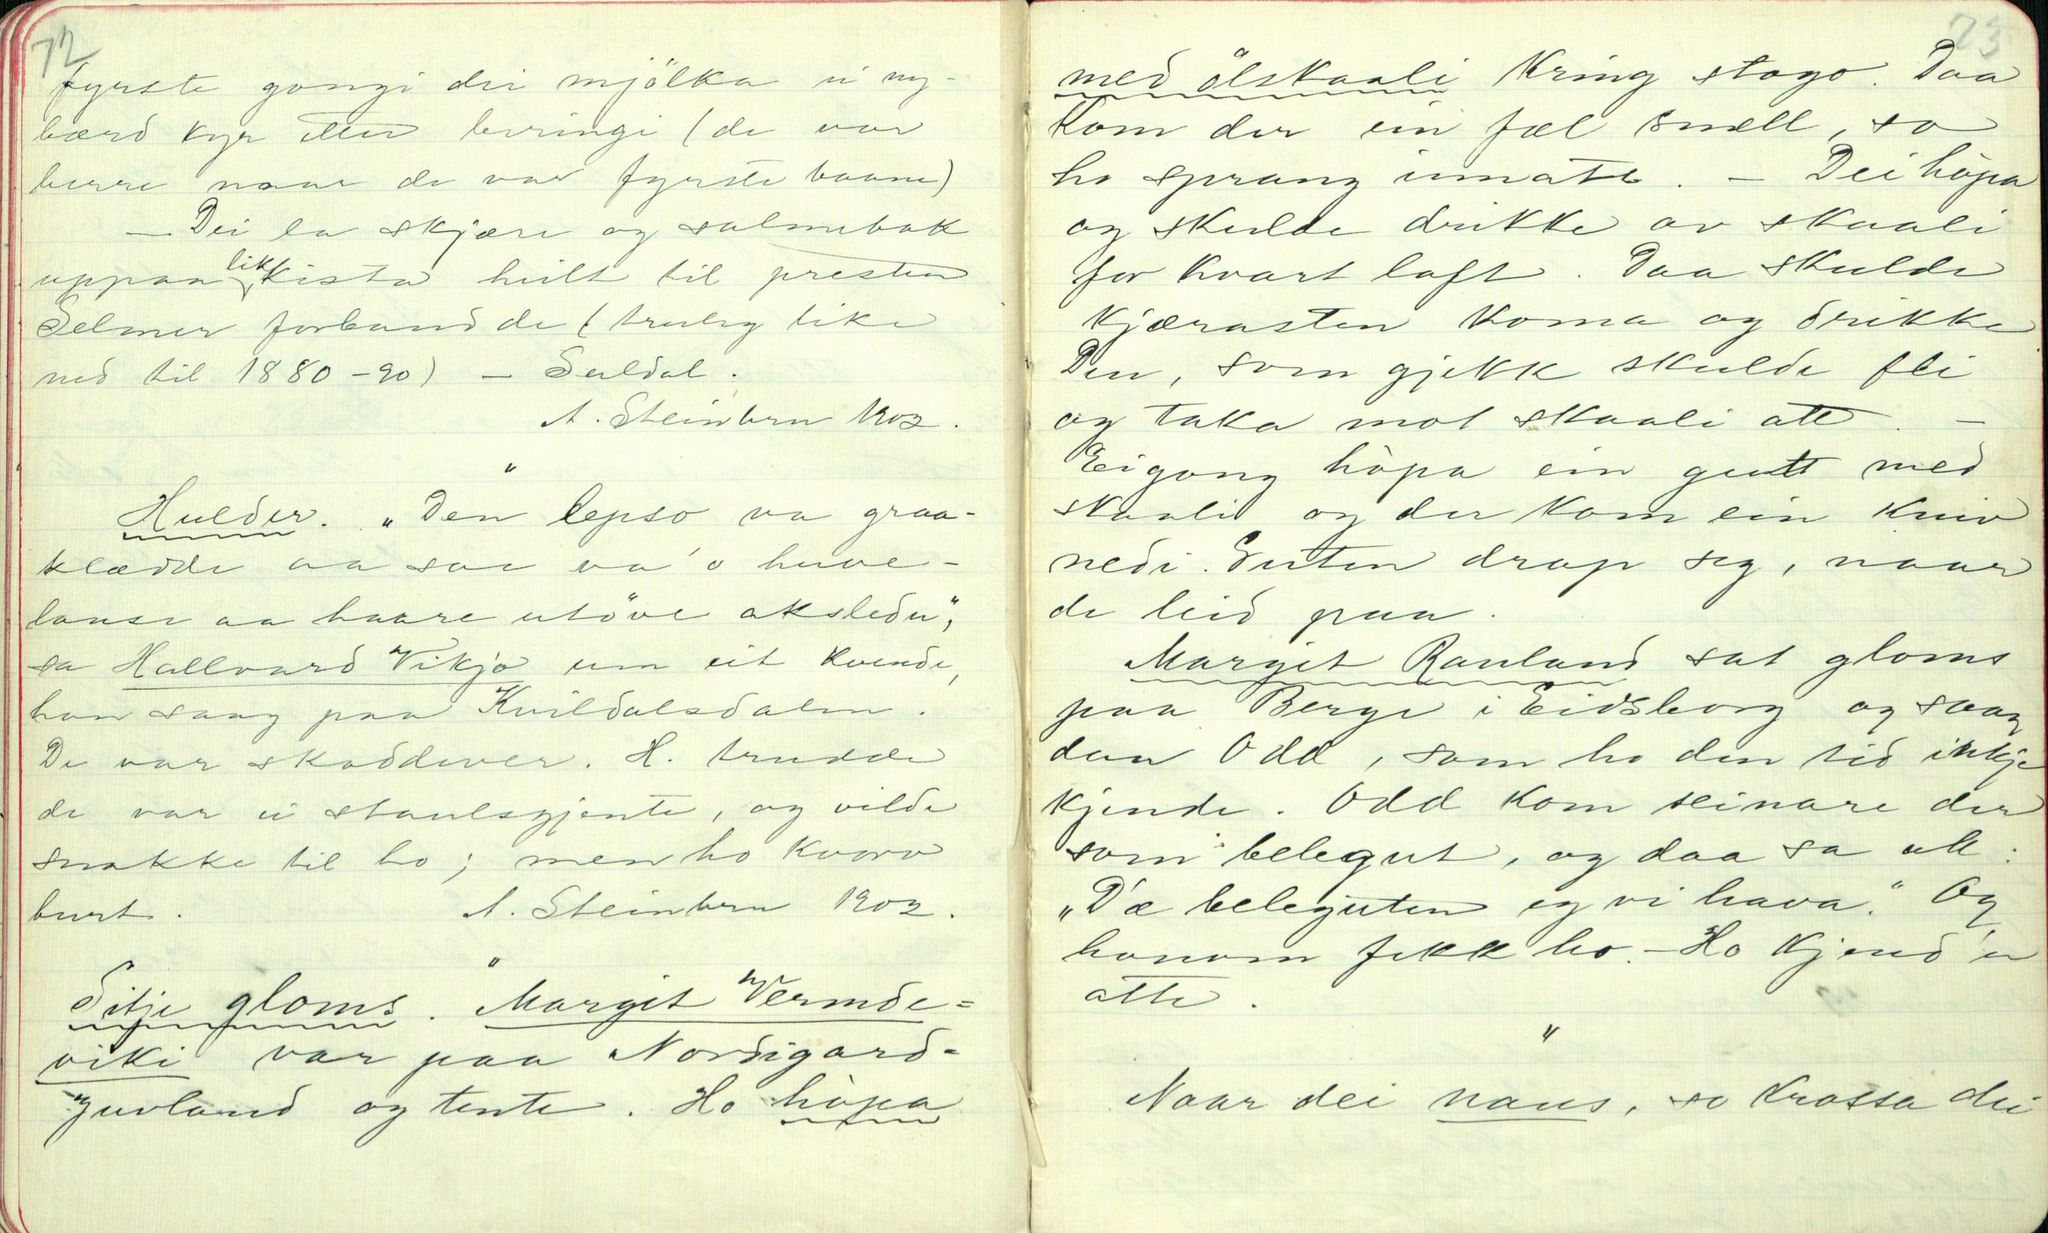 72
fyrste gongi dei mjölka ei ny-
bærd kyr etter beringi (de var
berre naar de var fyrste baane)
— Dei la skjære og salmebok
uppaa likkista heilt til presten
Selmer forbaud de (truleg like
ned til 1880-90) — Suldal.
A. Steinbru 1902.
"
Hulder. „Den lepso va graa-
klædde aa soe va'o huve-
lause aa haare utöve aksledn",
sa Hallvard Vikjo um eit kvende,
han saag paa Kvildalsdalen.
De var skoddever. H. trudde
de var ei staulsgjente, og vilde
snakke til ho; men ho kvarv
burt. A. Steinbru 1902.
"
Sitje gloms. Margit Vermde-
viki var paa Nordigard-
Juvland og tente. Ho hòpa
73
med ölskaali kring stogo. Daa
kom der ein fæl smell, so
ho sprang innatt. — Dei hòpa
og skulde drikke av skaali
for kvart laft. Daa skulde
kjærasten koma og drikke
Den, som gjekk skulde fli
og taka mot skaali att. —
Eigong hòpa ein gutt med
skaali og der kom ein kniv
nedi. Guten drap seg, naar
de leid paa.
Margit Rauland sat gloms
paa Berge i Eidsborg og saag
dan Odd, som ho den tid ikkje
kjende. Odd kom seinare der
som belegut, og daa sa ek:
„D'æ beleguten eg vi hava." Og
honom fekk ho. — Ho kjend'en
atte.
"
Naar dei naus, so krossa dei